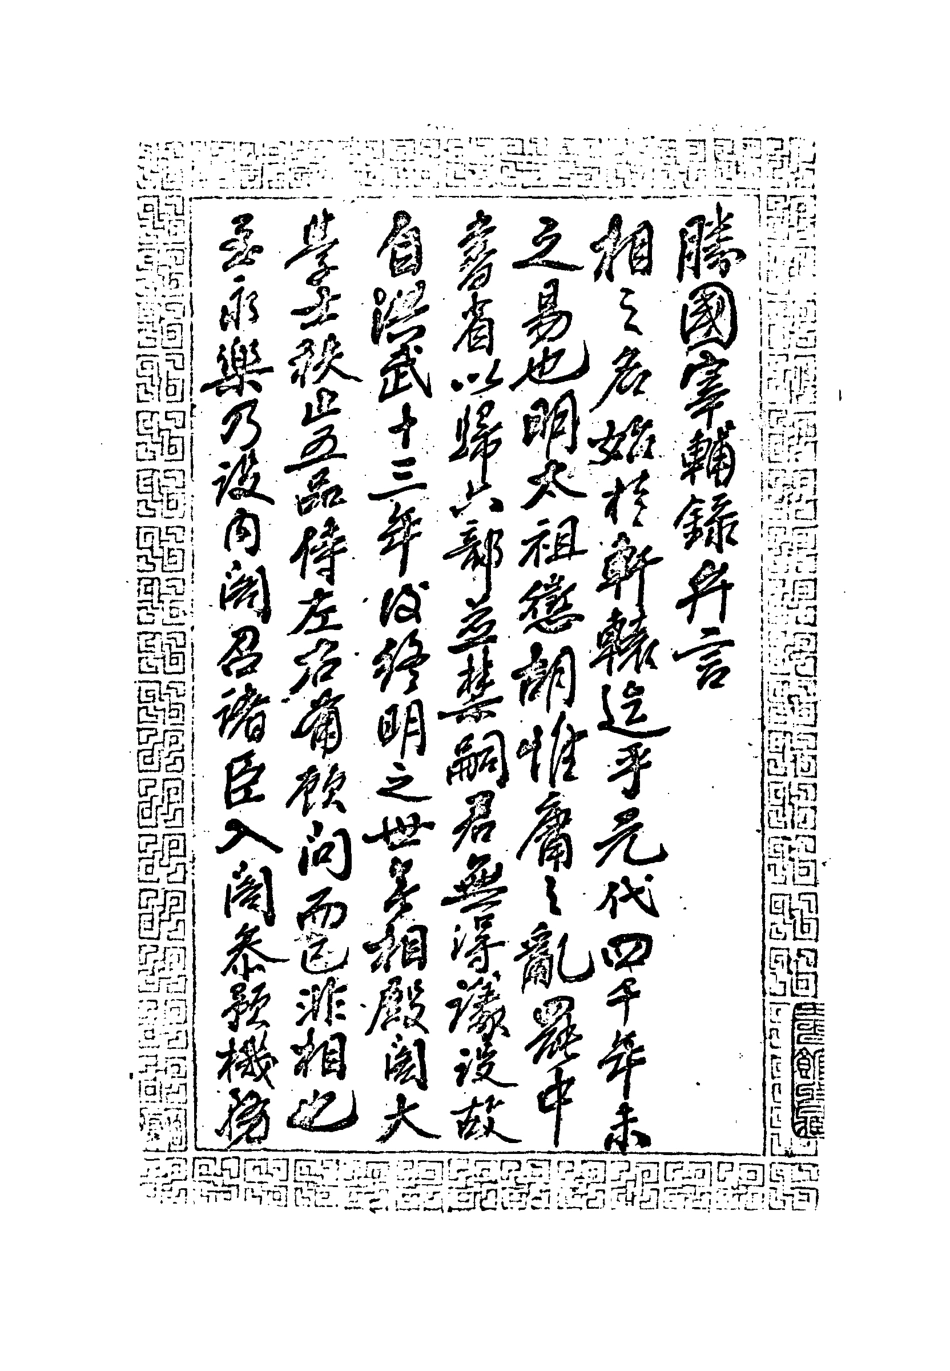 勝國宰輔錄弁言
相之名始於軒轅迄乎元代四千年未
之易也明太祖懲胡惟庸之亂罷中
書省以歸六部並禁嗣君無得議設故
自洪武十三年後終明之世無相殿閣大
學士秩止五品侍左右備顧問而已非相也
至永樂乃設內閣召諸臣入閣參預機務